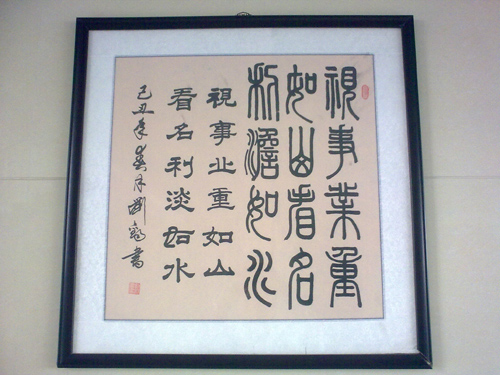 視事業重
如山看名
利澹如水
視事业重如山
看名利淡如水
己丑年春月劉書